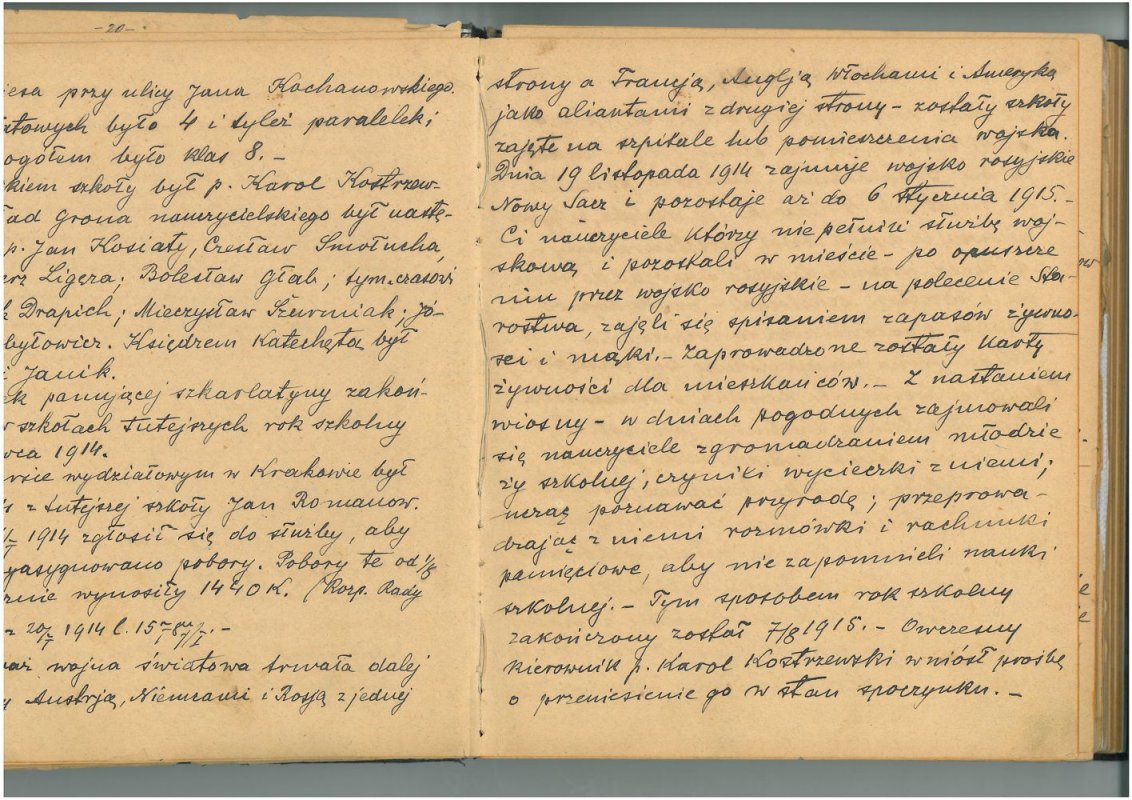 -20-
iesa przy ulicy Jana Kochanowskiego.
atowych było 4 i tyleż paralelek;
ogółem było klas 8. -
kiem szkoły był p. Karol Kostrzew-
ład grona nauczycielskiego był nastę-
p. Jan Kosiaty, Czesław Smołucha,
erz Ligęza; Bolesław Głab; tym.czasowi
k Drapich; Mieczysław Szurmiak; Jó-
bytowicz. Księdzem Katechętą był
i Janik.
ek panującej szkarlatyny zakoń-
w szkołach tutejszych rok szkolny
wca 1914.
rsie wydziałowym w Krakowie był
z tutejszej szkoły Jan Romanow.
1914 zgłosił się do służby, aby
yasygnowano pobory. Pobory te od 1/8
znie wynosiły 1440 K. (Rozp. Rady
z 20/I 1914 l. 15
waż wojna światowa trwała dalej
y Austrją, Niemcami i Rosją z jednej
strony a Francją, Anglją Włochami i Ameryką
jako aliantami z drugiej strony - zostały szkoły
zajęte na szpitale lub pomieszczenia wojska.
Dnia 19 listopada 1914 zajmuje wojsko rosyjskie
Nowy Sacz i pozostaje aż do 6 stycznia 1915. -
Ci nauczyciele którzy nie pełnili służbę woj-
skową i pozostali w mieście - po opuszcze
niu przez wojsko rosyjskie - na polecenie Sta-
rostwa, zajęli się spisaniem zapasów żywno-
ści i mąki. - Zaprowadzone zostały karty
żywności dla mieszkańców. - Z nastaniem
wiosny - w dniach pogodnych zajmowali
się nauczyciele zgromadzaniem młodzie
ży szkolnej, czynili wycieczki z niemi;
ucząc poznawać przyrodę; przeprowa-
dzając z niemi rozmówki i rachunki
pamięciowe, aby nie zapomnieli nauki
szkolnej. - Tym sposobem rok szkolny
zakończony został 7/8 1915. - Owczesny
kierownik p. Karol Kostrzewski wniósł prośbę
o przeniesienie go w stan spoczynku. -